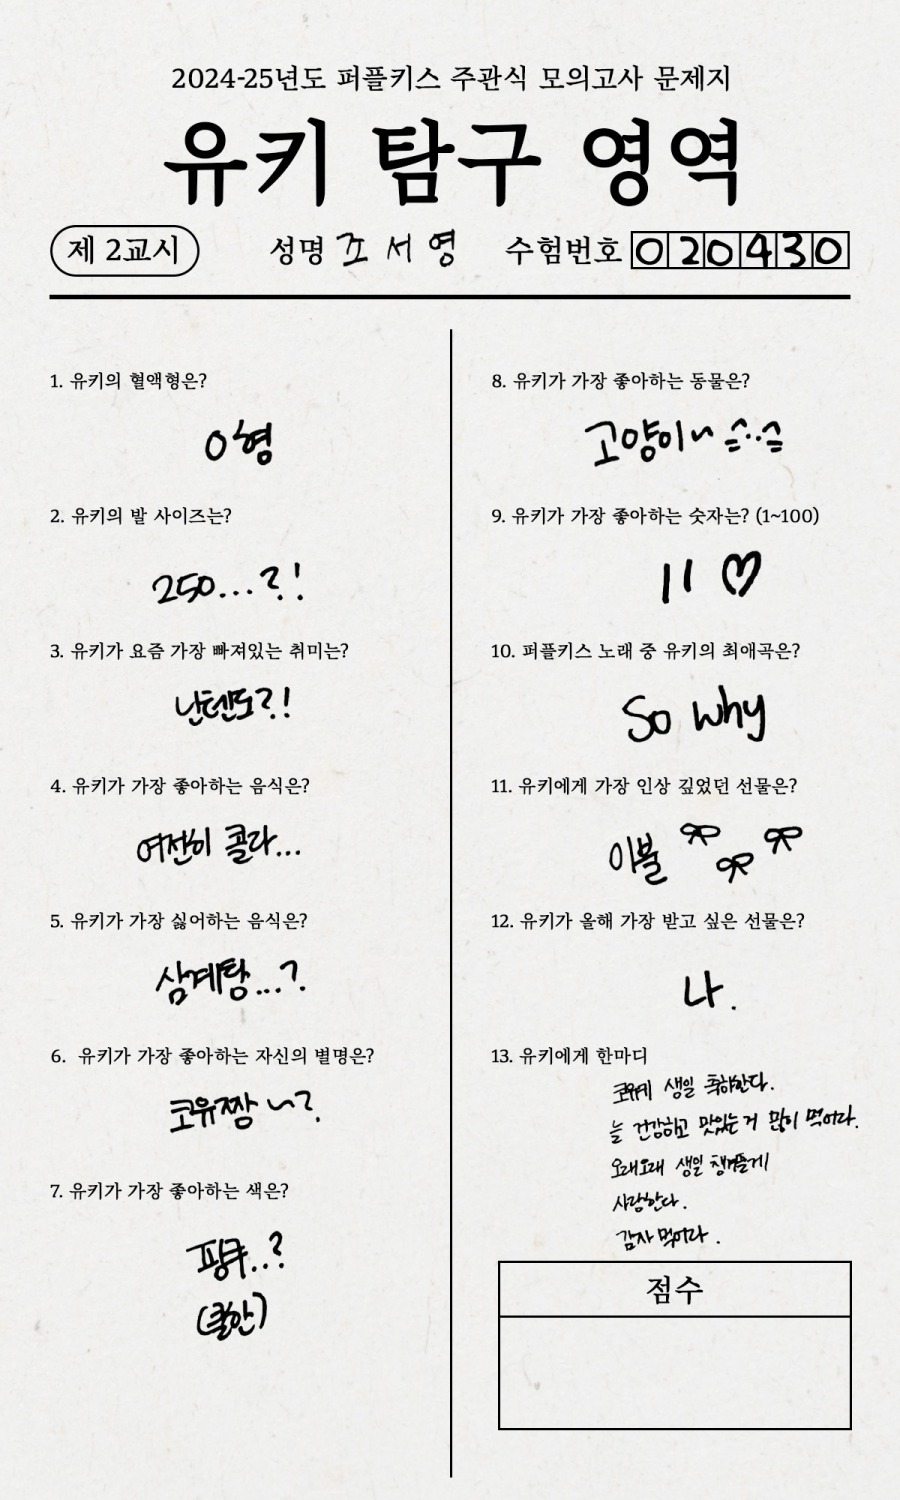 2024-25년도 퍼플키스 주관식 모의고사 문제지
유키 탐구 영역
제 2교시
성명 조서영
수험번호 020430
1. 유키의 혈액형은?
O형
2. 유키의 발 사이즈는?
250...?!
3. 유키가 요즘 가장 빠져있는 취미는?
닌텐도?!
4. 유키가 가장 좋아하는 음식은?
여전히 콜라...
5. 유키가 가장 싫어하는 음식은?
삼계탕...?
6. 유키가 가장 좋아하는 자신의 별명은?
코유짱~?
7. 유키가 가장 좋아하는 색은?
핑쿠..?
8. 유키가 가장 좋아하는 동물은?
고양이~
9. 유키가 가장 좋아하는 숫자는? (1~100)
11 ♡
10. 퍼플키스 노래 중 유키의 최애곡은?
So why
11. 유키에게 가장 인상 깊었던 선물은?
이불
12. 유키가 올해 가장 받고 싶은 선물은?
나.
13. 유키에게 한마디
코유키 생일 축하한다.
늘 건강하고 맛있는 거 많이 먹어라.
오래오래 생일 챙겨줄게
사랑한다.
감자 먹어라.
점수